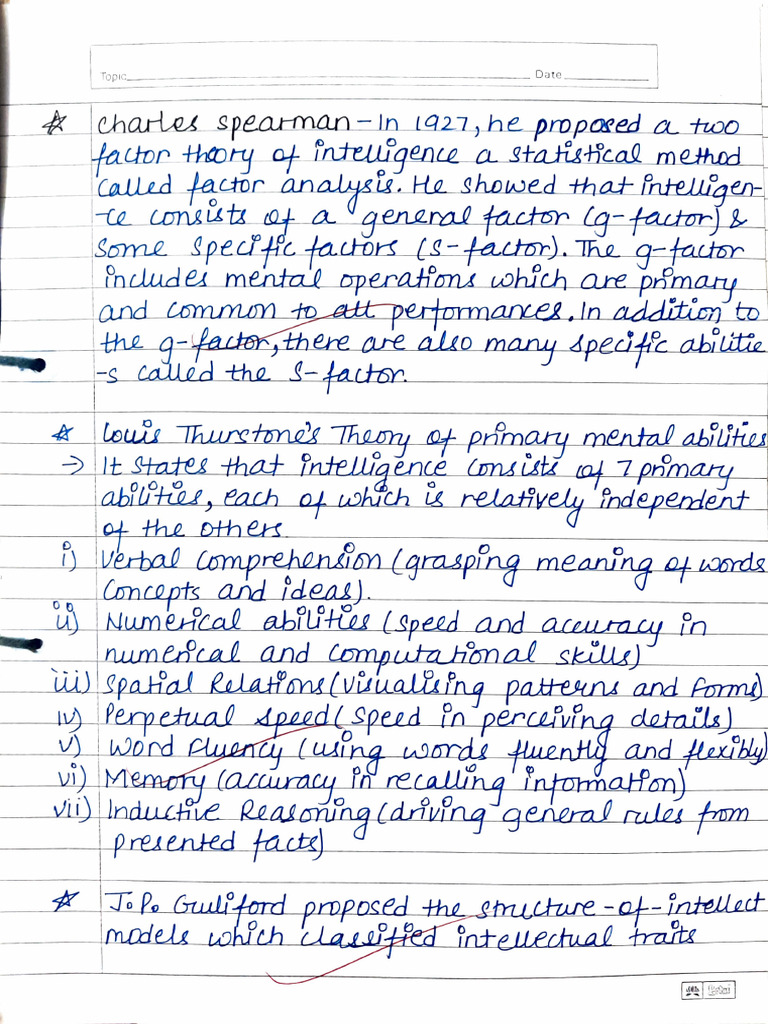 Topic Date
☆ Charles Spearman – In 1927, he proposed a two
factor theory of intelligence a statistical method
called factor analysis. He showed that intelligen-
-ce consists of a general factor (g-factor) &
some specific factors (s-factor). The g-factor
includes mental operations which are primary
and common to all performances. In addition to
the g-factor, there are also many specific abilitie
-s called the S-factor.
☆ Louis Thurstone's Theory of primary mental abilities
→ It states that intelligence consists of 7 primary
abilities, each of which is relatively independent
of the others.
i) Verbal Comprehension (grasping meaning of words
concepts and ideas).
ii) Numerical abilities (speed and accuracy in
numerical and computational skills)
iii) Spatial Relations (visualising patterns and forms)
iv) Perpetual speed (speed in perceiving details)
v) Word Fluency (using words fluently and flexibly)
vi) Memory (accuracy in recalling information)
vii) Inductive Reasoning (driving general rules from
presented facts)
☆ J.P. Guliford proposed the structure-of-intellect
models which classified intellectual traits